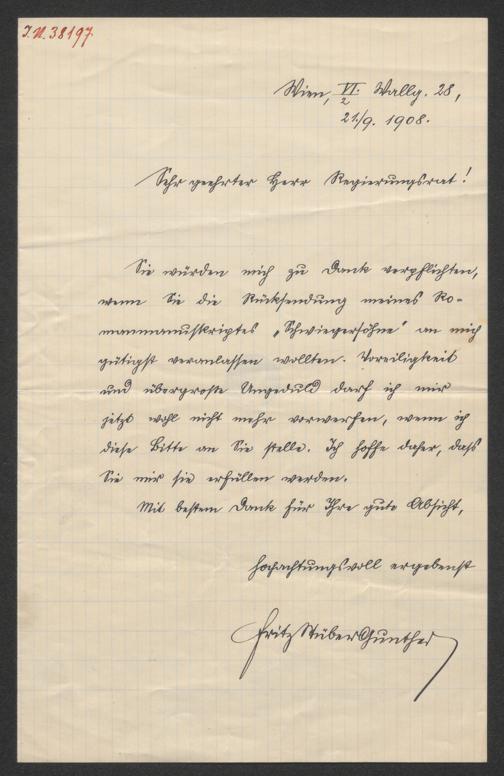 I.N. 38197
Wien, VI. Wallg. 28,
2
21./9. 1908.
Sehr geehrter Herr Regierungsrat!
Sie würden mich zu Dank verpflichten,
wenn Sie die Rücksendung meines Ro-
manmanuskriptes „Schwiegersöhne" an mich
gütigst veranlassen wollten. Voreiligkeit
und übergroße Ungeduld darf ich mir
jetzt wohl nicht mehr vorwerfen, wenn ich
diese Bitte an Sie stelle. Ich hoffe daher, dass
Sie mir sie erfüllen werden.
Mit bestem Dank für Ihre gute Absicht,
hochachtungsvoll ergebenst
Fritz Stüber Gunther